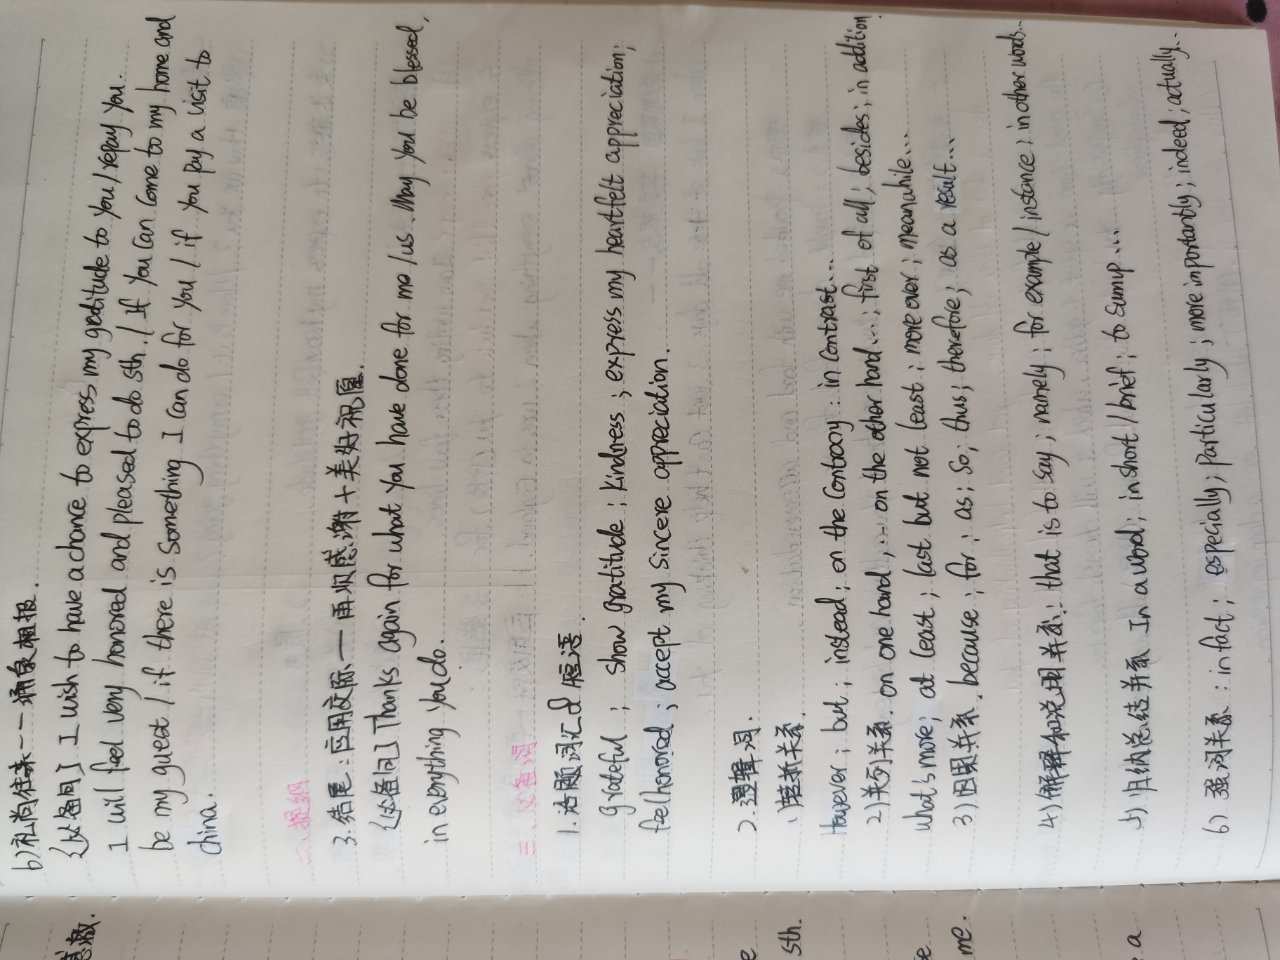 b)礼尚往来——涌泉相报.
{必备句} I wish to have a chance to express my gratitude to you/repay you.
I will feel very honored and pleased to do sth. / If you can come to my home and
be my guest / if there is something I can do for you / if you pay a visit to
china.
二、提纲
3. 结尾:应用交际——再次感谢+美好祝愿.
{必备句} Thanks again for what you have done for me/us. May you be blessed,
in everything you do.
三、必备词
1. 话题词汇及短语.
grateful; show gratitude; kindness; express my heartfelt appreciation;
feel honored; accept my sincere appreciation.
2. 逻辑词.
1)转折关系.
However; but; instead; on the contrary; in contrast...
2)并列关系. on one hand,... on the other hand...; first of all; besides; in addition
what's more; at least; last but not least; more over; meanwhile...
3)因果关系. because; for; as; so; thus; therefore; as a result...
4)解释和说明关系: that is to say; namely; for example/instance; in other words...
5)归纳总结关系 In a word; in short/brief; to sum up...
6)强调关系: in fact; especially; particularly; more importantly; indeed; actually...
sth.
me.
a